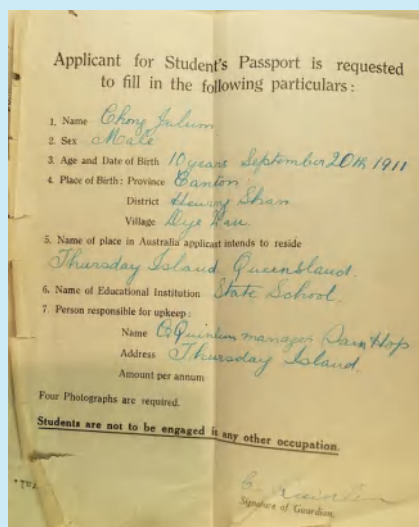 Applicant for Student's Passport is requested
to fill in the following particulars :
1. Name Chong Julum
2. Sex Male
3. Age and Date of Birth 10 years September 20th 1911
4. Place of Birth : Province Canton
District Heung Shan
Village Dye
5. Name of place in Australia applicant intends to reside
Thursday Island. Queensland.
6. Name of Educational Institution State School.
7. Person responsible for upkeep :
Name manager Hop
Address Thursday Island.
Amount per annum
Four Photographs are required.
Students are not to be engaged in any other occupation.
Signature of Guardian.